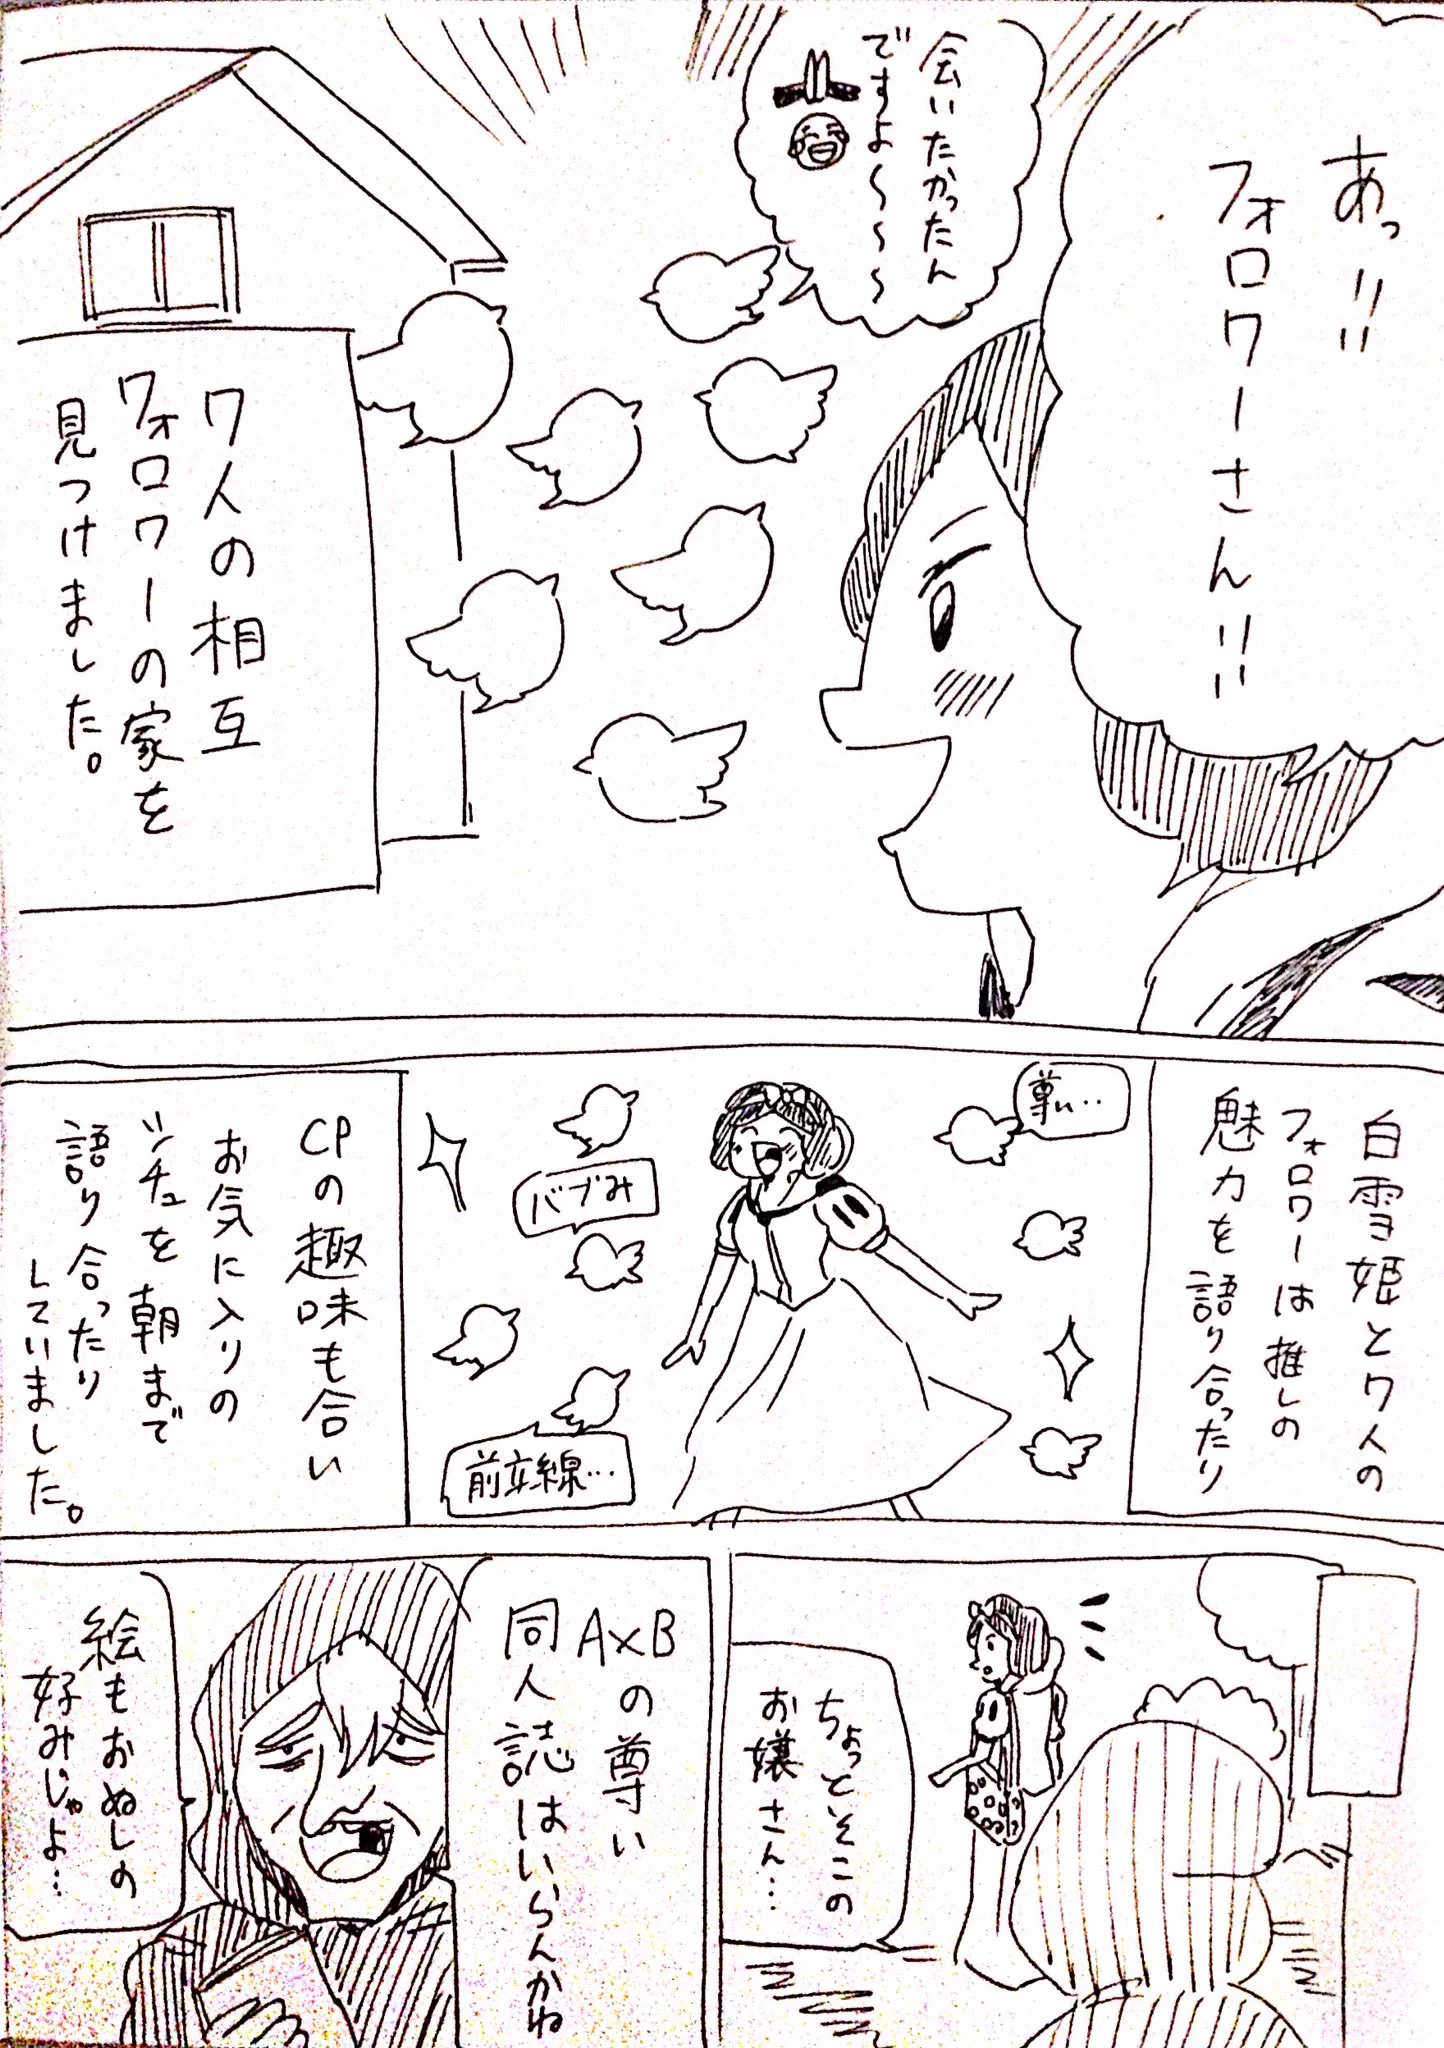 あっ!!
フォロワーさん!!
会いたかったん
ですよ〜〜〜〜
7人の相互
フォロワーの家を
見つけました。
白雪姫と7人の
フォロワーは推しの
魅力を語り合ったり
尊い…
バブみ
前立線…
CPの趣味も合い
お気に入りの
シチュを朝まで
語り合ったり
していました。
ちょっとそこの
お嬢さん…
A×Bの尊い
同人誌はいらんかね
絵もおぬしの
好みじゃよ…